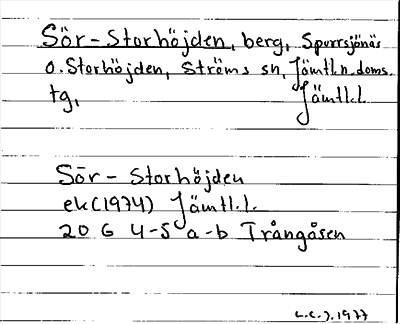 Sör-Storhöjden, berg, Sporrsjönäs
o. Storhöjden, Ströms sn, Jämtl. n. doms.
tg, Jämtl. l.
Sör-Storhöjden
ek (1974) Jämtl. l.
20 G 4-5 a-b Trångåsen
L.C.J. 1977